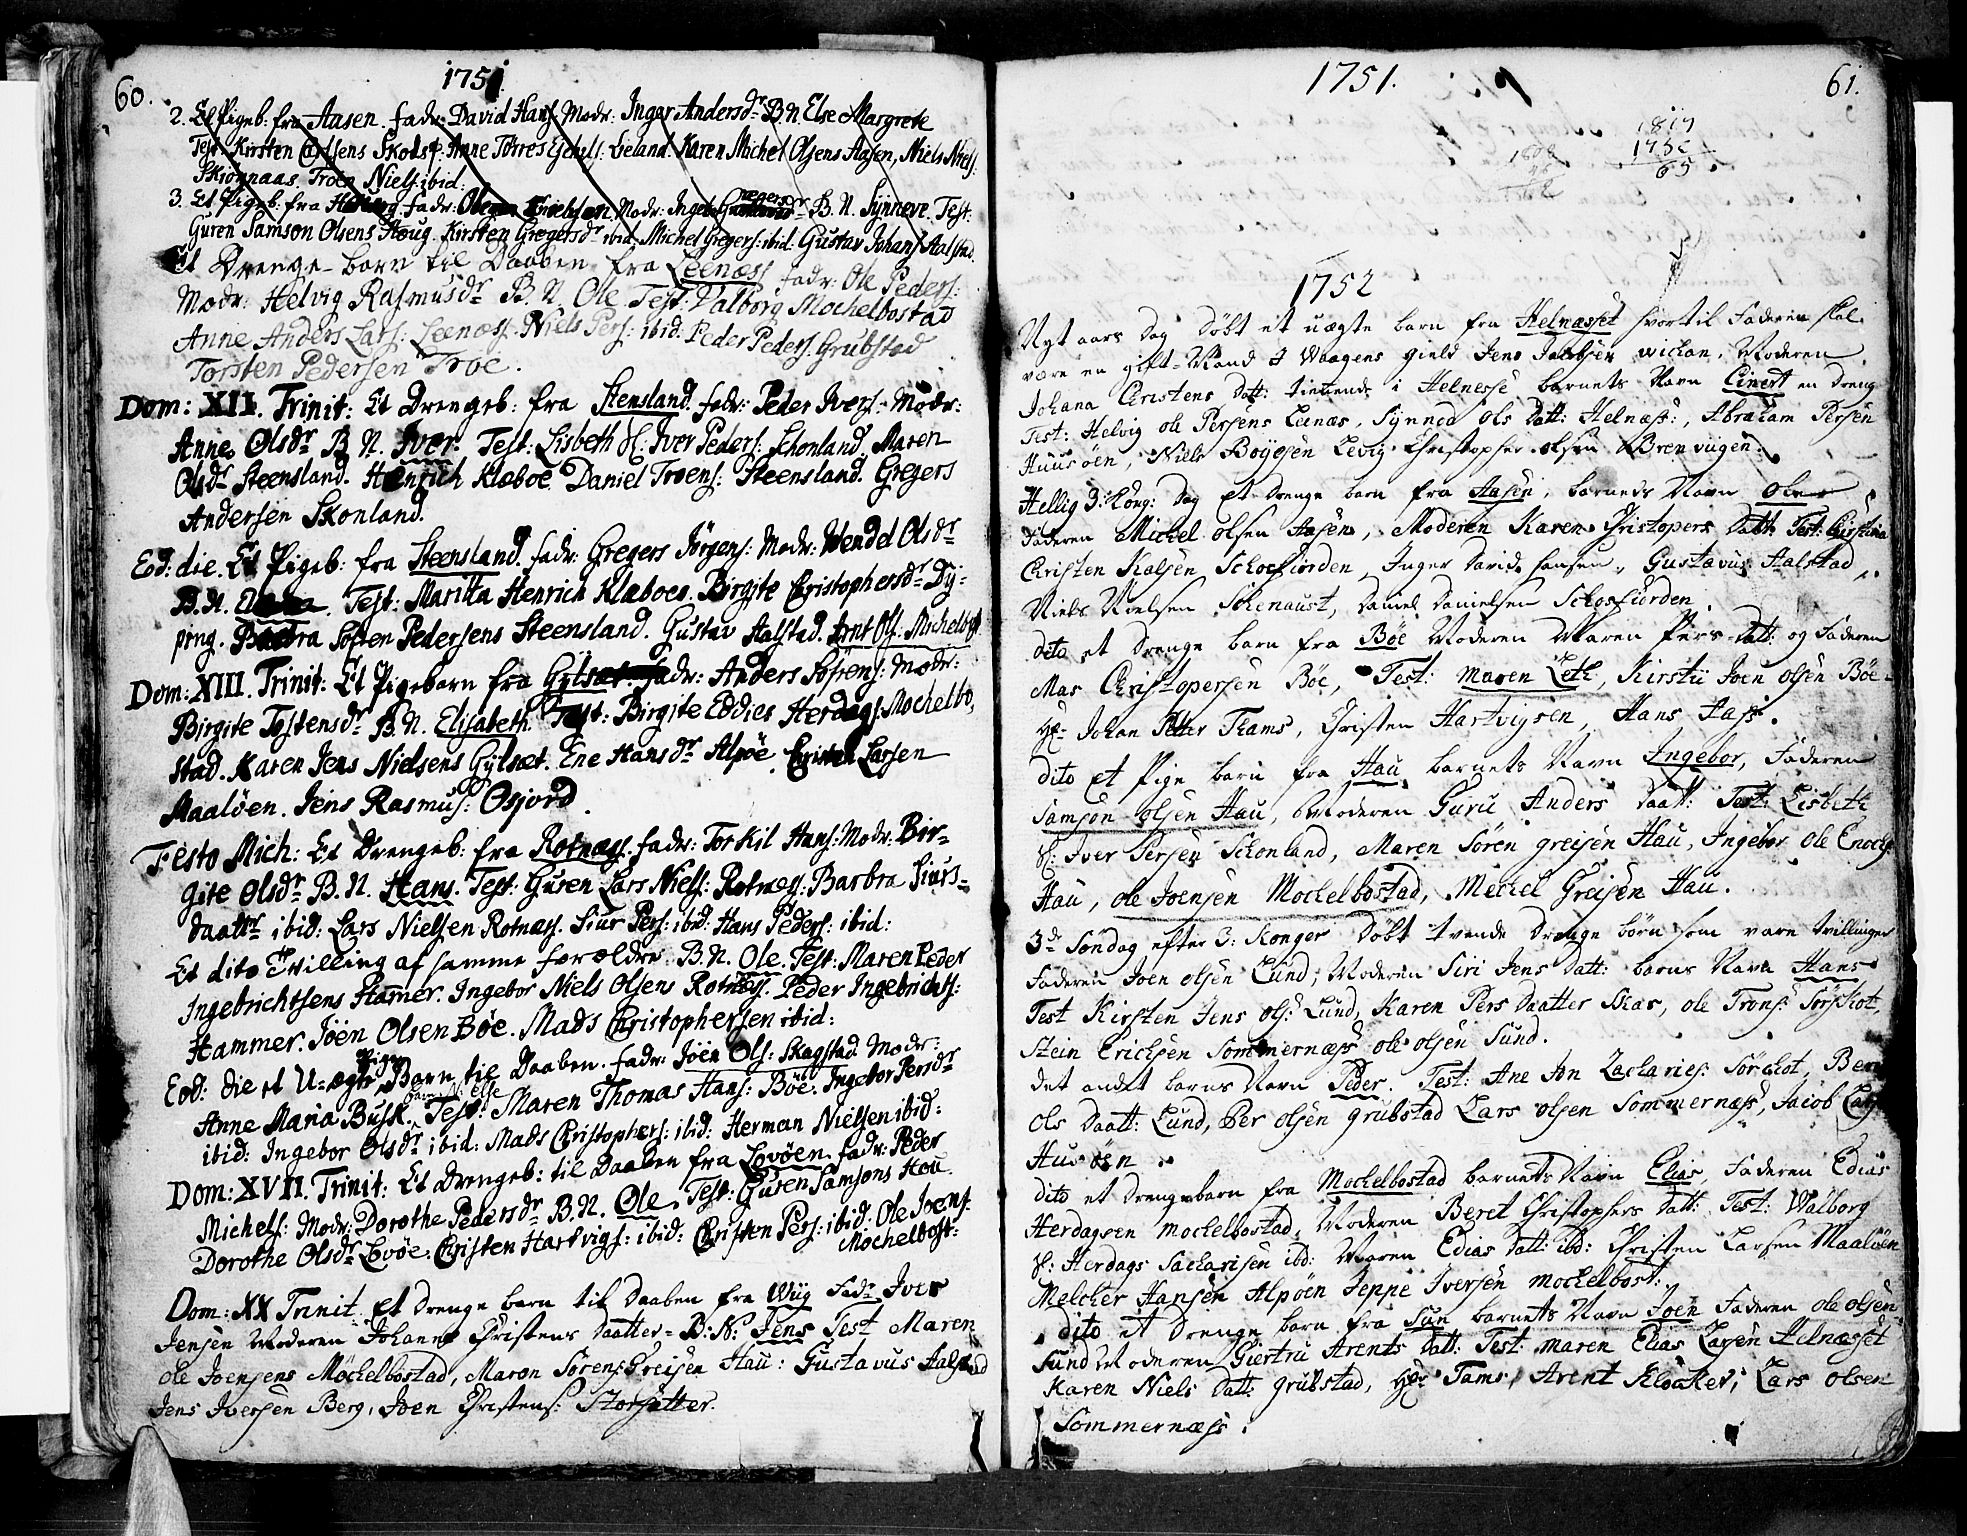 60.
1751
2. Et Pigeb: fra Aasen. fadr: David Hans: Modr: Inger Andersdr B:N Else Margrete
Test: Kirsten Carlsens Skodsf: Anne Torres Leland. Karen Michel Olsens Aasen, Niels Niels:
Skionnaas Troen Niels: ibid:
3. Et Pigeb: fra fadr: Modr: Ingeb: Gregersdr B.N. Synneve. Test:
Guren Samson Olsens Houg. Kirsten Gregersdr ibid Michel Gregers: ibid: Gustav Johans Aalstad.
Et Drenge-barn til Daaben fra Leenæss fadr: Ole Peders:
Modr: Helvig Rasmusdr B.N. Ole. Test: Valborg Mochelbostad
Anne Anders Lars: Leenæss. Niels Pers: ibid: Peder Peders: Grubstad
Torsten Pedersen Troe.
Dom: XII. Trinit: Et Drengeb: fra Stensland. fadr: Peder Ivers: Modr:
Anne Olsdr B.N. Iver. Test: Lisbeth Sl. Iver Peders: Schonland. Maren
Olsdr Steensland. Henrich Klæboe. Daniel Troens: Steensland. Gregers
Andersen Skonland.
Eod: die. Et Pigeb: fra Steensland. fadr: Gregers Jörgens: Modr: Wendel Olsdr
B.N. Test: Maritta Henrich Klæboes. Birgite Christophersdr Dy-
ping. Barbra Sofren Pedersens Steensland. Gustav Aalstad. Arnt Ols. Michelbost
Dom: XIII. Trinit: Et Pigebarn fra Gylsæt. fadr: Anders Sofrens: Modr:
Birgite Tostensdr B.N. Elisabeth. Test: Birgite Eddies Herdags: Mochelbo,
stad. Karen Jens Nielsens Gylsæt. Ene Hansdr Alpöe. Christen Larsen
Maalöen. Jens Rasmus: Osjord.
Festo Mich: Et Drengeb: fra Rotnæs. fadr: Torkil Hans: Modr: Bir-
gite Olsdr B.N. Hans. Test: Guren Lars Niels: Rotnæss: Barbra Siurs-
daattr ibid: Lars Nielsen Rotnæss. Siur Pers: ibid: Hans Peders: ibid:
Et dito Tvilling af samme forældre. B.N. Ole. Test: Maren Peder
Ingebrichtsens Hamer. Ingebor Niels Olsens Rotnæs. Peder Ingebrichts:
Hammer. Jöen Olsen Böe. Mads Christophersen ibid:
Eod: die et U-ægte Pige Barn til Daaben. fadr: Jöen Ols: Skagstad. Modr:
Anne Maria Busk. Barnets N. Else Test: Maren Thomas Hans: Böe. Ingebor Persdr
ibid: Ingebor Olsdr ibid: Mads Christophers: ibid: Herman Nielsen ibid:
Dom: XVII. Trinit: Et Drengeb: til Daaben fra Lovöen. fadr: Peder
Michels: Modr: Dorothe Pedersdr B.N. Ole. Test: Guren Samsons Hou.
Dorothe Olsdr Lovöe. Christen Hartvigs: ibid: Christen Pers: ibid: Ole Joens:
Mochelbost:
Dom: XX Trinit Et drenge barn til Daaben fra Wiig Fadr Iver
Jensen Moderen Johanne Christens daatter- B:N: Jens Test Maren
Ole Joensens Möchelbostad, Maron Sörens: Greisen Hau: Gustavus Aalstad
Jens Iversen Berg, Joen Christens: Storsætter.
1751.
61.
1817
1752
65
1808
1752
Nyt aars Dag Döbt et uægte barn fra Helnæsset hvortil Faderen skal
være en gift-Mand i Waagens gield Jens Jacobsen wickan, Moderen
Johana Christens Datt: tienende i Helnesse barnets Navn Einert en dreng
Test: Helvig ole Persens Leenæs, Synneva Ols Datt: Helnæss:, Abraham Persen
Huusöen, Niels Boyesen Levig Christopher olsen Brenvigen.
Hellig 3: Kong: Dag Et drenge barn fra Aasen, barnets Navn Ole
Faderen Michel olsen Aasen, Moderen Karen Christopers Datt: Test: Christina
Christen Kalsen Schosfiorden, Inger David hansen, Gustavus Aalstad,
Niels Nielsen Schenaust, Daniel Danielsen Schosfiorden.
dito et Drenge barn fra Böe Moderen Maren Pers-Datt: og Faderen
Mas Christopersen Böe, Test: maren Leth, Kirsti Joen olsen Böe
Hr Johan Petter Thams, Christen Hartvigsen, Hans Hass.
dito et Pige barn fra Hau barnets Navn Ingebor, Faderen
Samson olsen Hau, Moderen Guru Anders Daatt: Test: Lisbeth
Sl: Iver Persen Schonland, Maren Sören greisen Hau, Ingebor Ole Enochs:
Hau, ole Joensen Mockelbostad, Mechel Greisen Hau.
3de Söndag efter 3: Konger Döbt tvende Drenge börn som vare tvillinger
Faderen Joen olsen Lund, Moderen Siri Jens Datt: barns Navn Hans
Test Kirsten Jens ols: Lund, Karen Pers Daatter Skar, ole Trons: Sörskot,
Stein Erichsen Sommernæss ole olsen Sund.
det andet barns Navn Peder. Test: Ane An Zacharies: Sörskot, Beret
Ols Daatt: Lund, Per olsen grubstad Lars olsen Sommernæss, Jacob Lars
Husöen.
dito et drengebarn fra Mockelbostad barnets Navn Elias, Faderen Edias
Herdagsen mockelbostad, Moderen Beret Christophers Datt: Test: Walborg
Sl: Herdags Sacharisen ibd: Maren Edias Datt: ibd: Christen Larsen Maalöen
Melcher Hansen Alpöen Jeppe Iversen mockelbost:
dito et Drenge barn fra Sun barnets Navn Joen Faderen ole olsen
Sund Moderen Giertru Arents Datt: Test: maren Elias Larsen Helnæsset
Karen Niels Datt: grubstad, Hr Tams, Arent Klöcker, Lars olsen
Sommernæss.